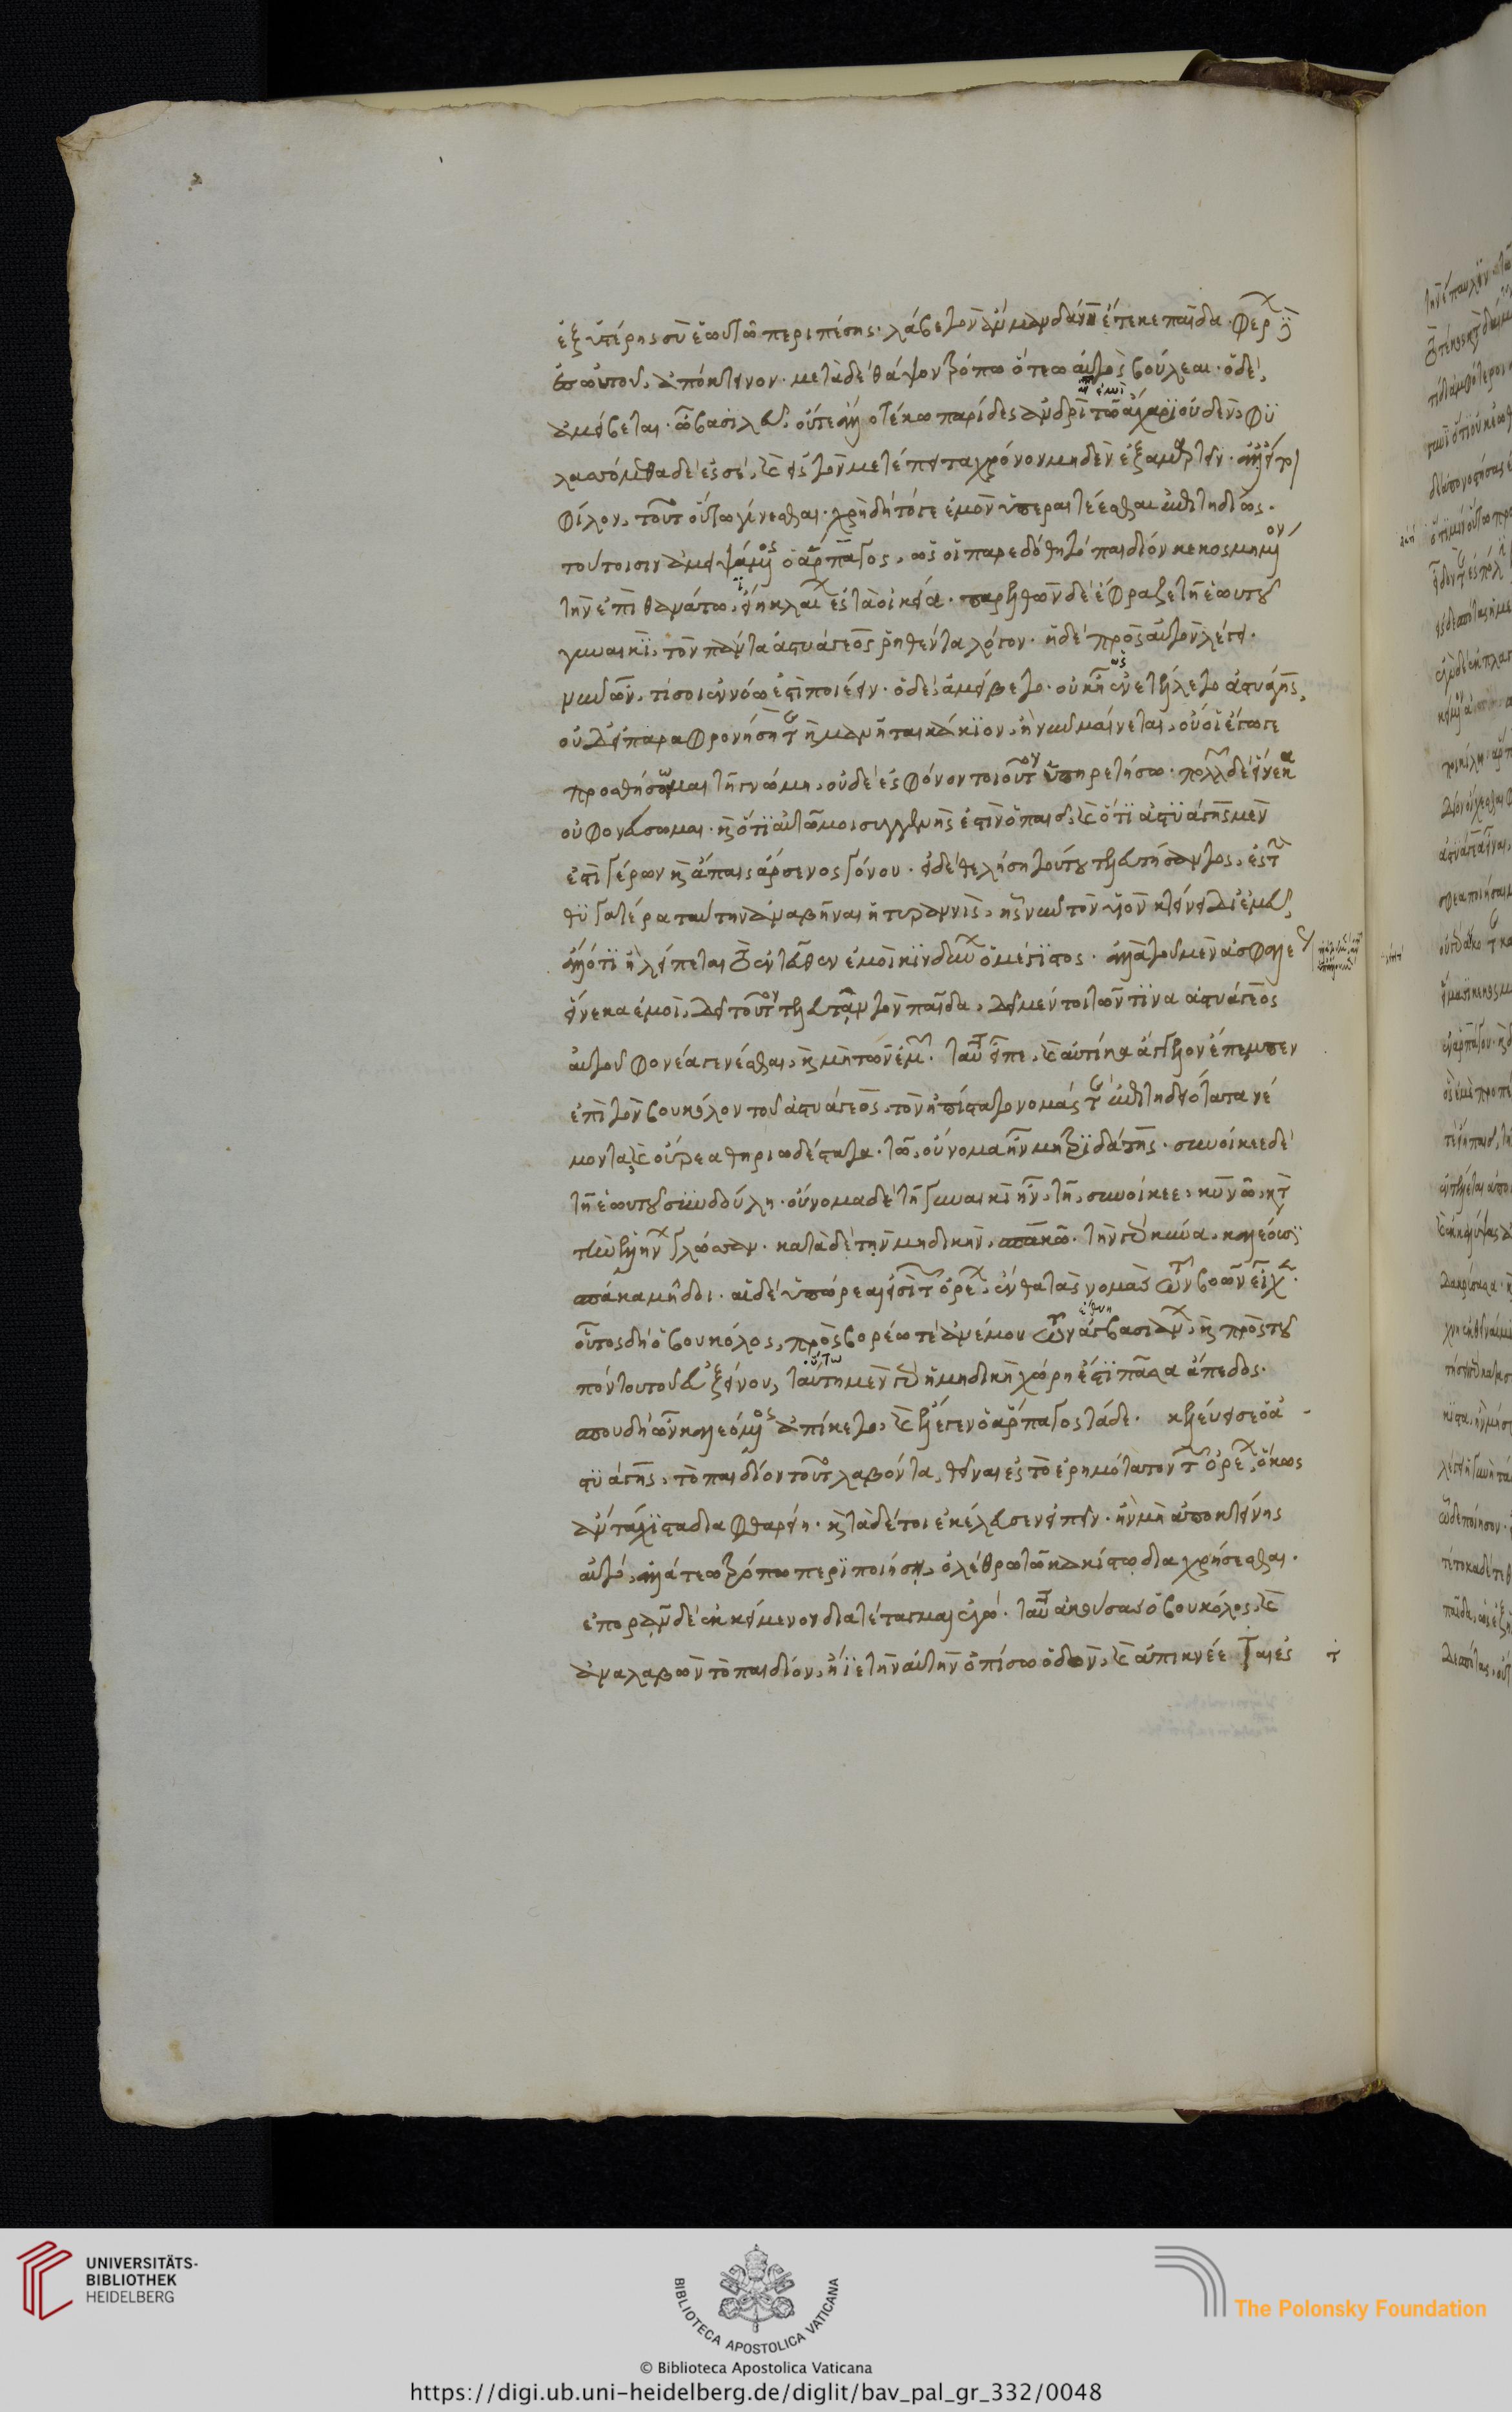 ἐξ ὑστέρης σὺ ἑωυτῶ περιπέσης· λάβε τὸν ἂν μανδάνη ἔτεκε παῖδα· φέρων δὲ
ἐς ἑωυτοῦ, ἀπόκτεινον· μετὰ δὲ θάψον τρόπω ὅτεω αὐτὸς βούλεαι· ὁ δὲ,
ἀμείβεται· ὦ βασιλεῦ, οὔτε ἄλλοτέ κω παρίδες ἀνδρὶ τῶ ἄχαρι οὐδὲν, φυ
λασσόμεθα δὲ ἐς σὲ, καὶ εἰς τὸν μετέπειτα χρόνον μηδὲν ἐξαμαρτεῖν· ἀλλ' εἴ τοι
φίλον, τοῦτο οὕτω γίνεσθαι· χρὴ δὴ τό γε ἐμὸν ὑπεραιτέεσθαι ἐπιτηδέως·
τούτοισιν ἀμειψάμενος ὁ ἅρπαγος, ὥς οἱ παρεδόθη τὸ παιδίον κεκοσμημένον
τὴν ἐπὶ θανάτω, ἤιη κλαίων ἐς τὰ οἰκεία· παρελθὼν δὲ ἔφραζε τῆ ἑωυτοῦ
γυναικὶ, τὸν πάντα ἀστυάγεος ῥηθέντα λόγον· ἡ δὲ πρὸς αὐτὸν λέγει·
νῦν ὦν, τί σοι ἐν νόω ἐστὶ ποιέειν· ὁ δὲ ἀμείβετο· οὐκ ἧ ὡς ἐνετέλλετο ἀστυάγης,
οὐδ' εἰ παραφρονήση τε ἢ μανῆται κάκιον, ἢ νῦν μαίνεται, οὔ οἱ ἔγωγε
προσθήσομαι τῆ γνώμη, οὐδὲ ἐς φόνον τοιοῦτον ὑπηρετήσω· πολλῶν δὲ εἵνεκα
οὐ φονεύσω μαι· καὶ ὅτι αὐτῶ μοι συγγενής ἐστιν ὁ παῖς, καὶ ὅτι ἀστυάγης μὲν
ἐστι γέρων καὶ ἄπαις ἄρσενος γόνου· εἰ δ' ἐθελήση τούτου τελευτήσαντος, ἐς τὴν
θυγατέρα ταύτην ἀναβῆναι ἡ τυραννὶς, ἧς νῦν τὸν υἱὸν κτείνει δι' ἐμεῦ,
ἄλλό τι ἢ λείπεται τὸ ἐντεῦθεν ἐμοὶ κινδύνων ὁ μέγιστος· ἀλλὰ τοῦ μὲν ἀσφαλέος
εἵνεκα ἐμοὶ, δεῖ τοῦτον τελευτᾶν τὸν παῖδα, δεῖ μέντοι τῶν τινα ἀστυάγεος
αὐτοῦ φονέα γενέσθαι, καὶ μὴ τῶν ἐμῶν· ταῦτα εἶπε, καὶ αὐτίκα ἄγγελον ἔπεμπεν
ἐπὶ τὸν βουκόλον τοῦ ἀστυάγεος, τὸν ἠπίστατο νομάς τε ἐπιτηδεότατα νέ
μοντα, καὶ οὔρεα θηριωδέστατα· τῶ, οὔνομα ἦν μητριδάτης· συνοίκεε δὲ
τῆ ἑωυτοῦ συνδούλη· οὔνομα δὲ τῆ γυναικὶ ἦν, τῆ συνοίκεε, κυνῶ, κατὰ
τὴν ἑλλήνων γλῶσσαν· κατὰ δὲ τὴν μηδικὴν, σπακῶ· τὴν γὰρ κύνα, καλέουσι
σπάκα μῆδοι· αἱ δὲ ὑπώρεαι εἰσὶ τῶν ὀρέων, ἔνθα τὰς νομὰς τῶν βοῶν εἶχεν
οὗτος δὴ ὁ βουκόλος, πρὸς βορέω τε ἀνέμου τῶν ἀγβατάνων, καὶ πρὸς τοῦ
πόντου τοῦ εὐξείνου, ταύτη μὲν γὰρ ἡ μηδικὴ χώρη ἐστὶ πᾶσα ἄπεδος·
σπουδῆ ὦν καλεόμενος ἀπίκετο, καὶ ἔλεγεν ὁ ἅρπαγος τάδε· κελεύει σε ὁ ἀ
στυάγης, τὸ παιδίον τοῦτο λαβόντα, θεῖναι ἐς τὸ ἐρημότατον τῶν ὀρέων, ὅκως
ἂν τάχιστα διαφθαρείη· καὶ τάδε τοι ἐκέλευσεν εἰπεῖν· ἢν μὴ ἀποκτείνης
αὐτό, ἀλλά τεω τρόπω περιποιήση, ὀλέθρω τῶ κακίστω διαχρήσεσθαι·
ἐπορᾶν δὲ ἐκκείμενον διατέταγμαι ἐγώ· ταῦτα ἀκούσας ὁ βουκόλος, καὶ
ἀναλαβὼν τὸ παιδίον, ἤϊε τὴν αὐτὴν ὀπίσω ὁδὸν, καὶ ἀπικνέεται ἐς
UNIVERSITÄTS-
BIBLIOTHEK
HEIDELBERG
BIBLIOTECA APOSTOLICA VATICANA
The Polonsky Foundation
© Biblioteca Apostolica Vaticana
https://digi.ub.uni-heidelberg.de/diglit/bav_pal_gr_332/0048